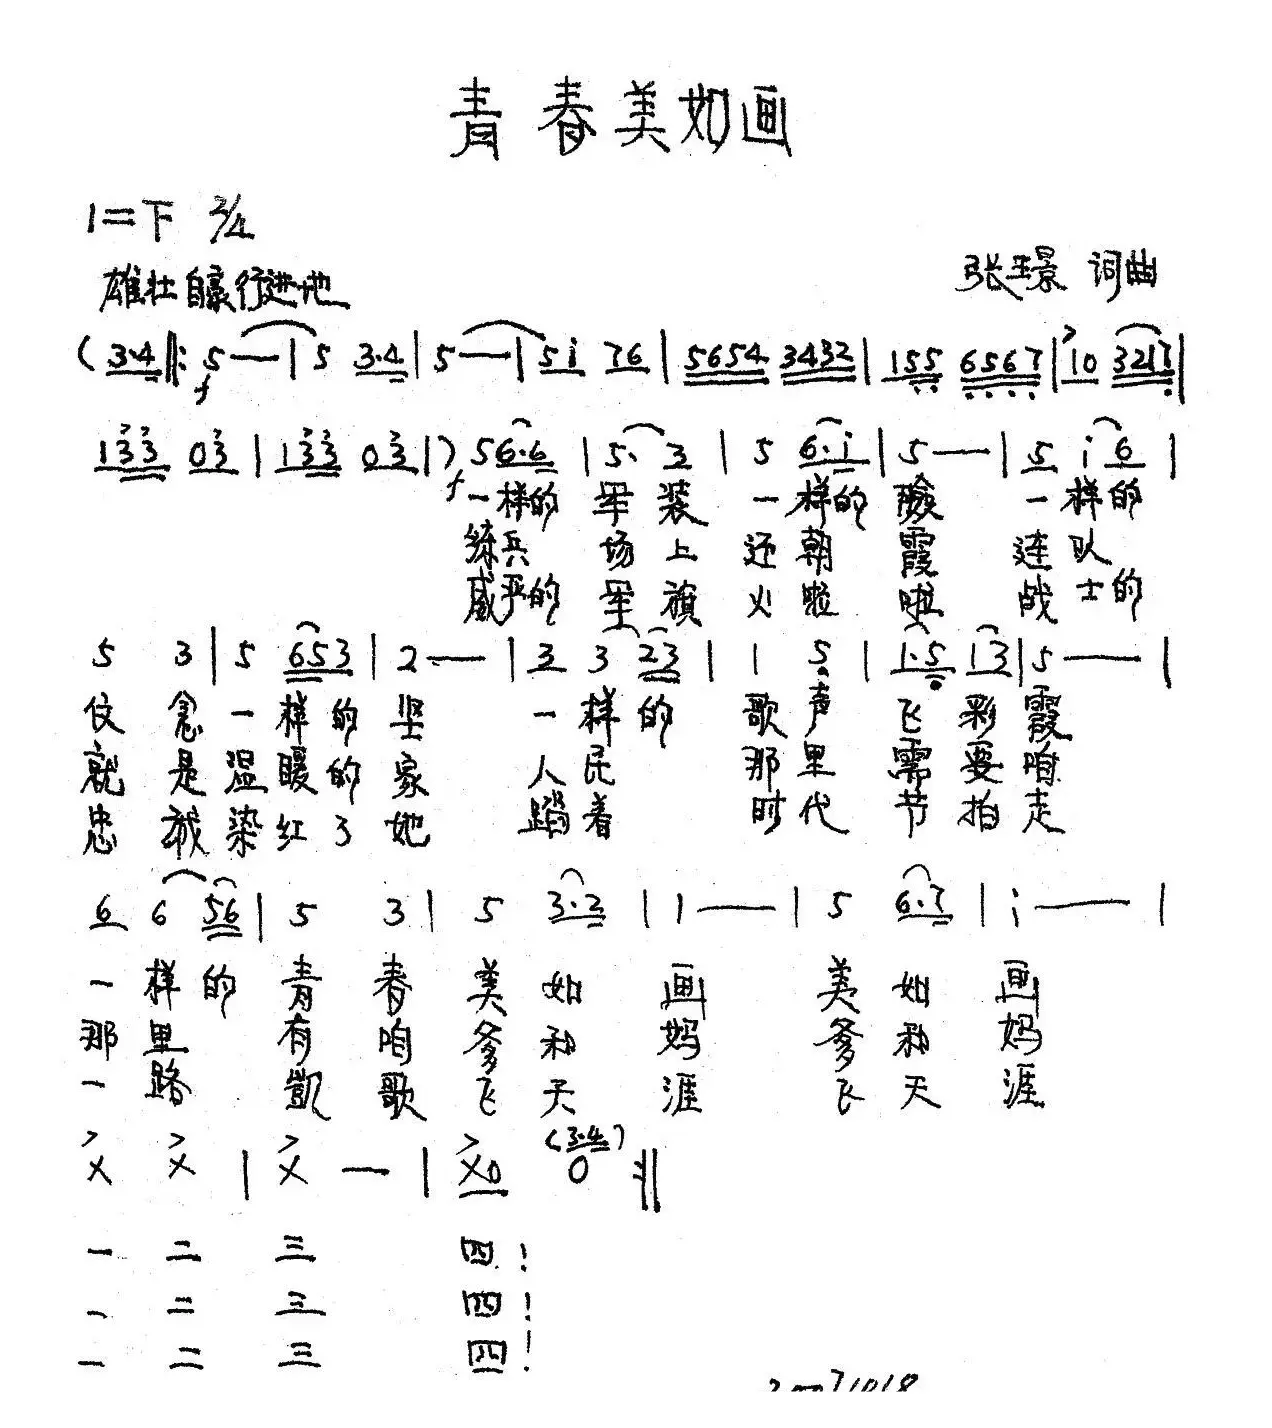 青春美如画
1=F 2/4
雄壮自豪行进地
张璟 词曲
( 3·4 ‖: 5 — | 5 3·4 | 5 — | 5 i 7 6 | 5654 3432 | 155 6567 | 10 3217 |
133 03 | 133 03 | ) 5 6·6 | 5· 3 | 5 6·i | 5 — | 5 i 6 |
f 一样的 军装 一样的 脸 一样的
练兵 场上 还朝 霞 连队
威严的 军旗 火啦 啦 战士的
5 3 | 5 653 | 2 — | 3 3 23 | 1 5 | 1·5 13 | 5 — |
仗念 一样的 坚 一样的 歌声 飞彩 霞
就是 温暖的 家 人民 那里 需要 咱
忠诚 染红了 她 踏着 时代 节拍 走
6 6 56 | 5 3 | 5 3·2 | 1 — | 5 6·7 | i — |
一样的 青春 美如 画 美如 画
那里 有咱 爹和 妈 爹和 妈
一路 凯歌 飞天 涯 飞天 涯
X X | X — | X0 (3·4) 0 :‖
一 二 三 四!
一 二 三 四!
一 二 三 四!